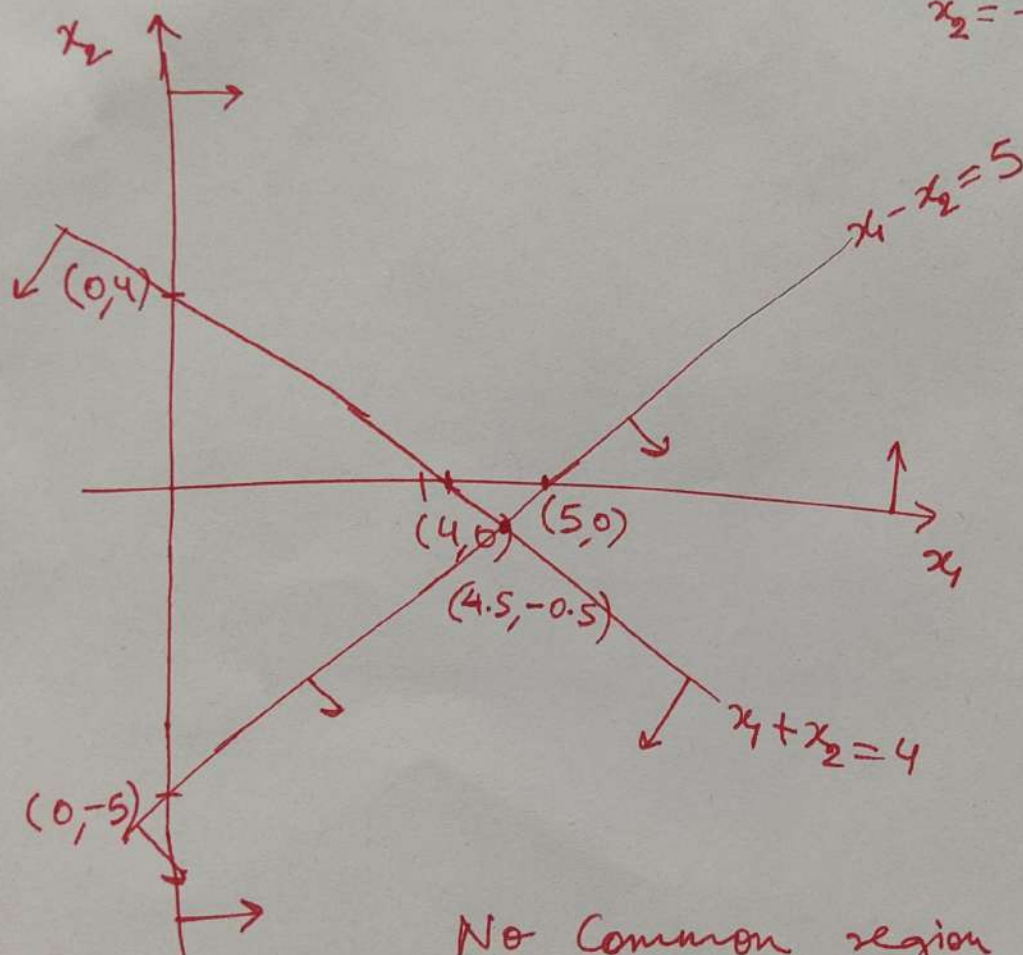 x₂ = -
x₂
x₁ - x₂ = 5
(0,4)
(4,0)
(5,0)
x₁
(4.5,-0.5)
x₁ + x₂ = 4
(0,-5)
No Common region